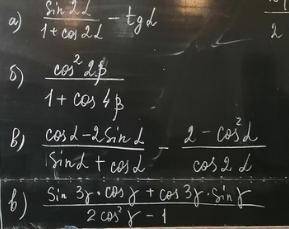 а) sin 2α / 1 + cos 2α − tg α
б) cos² 2β / 1 + cos 4β
в) cos α − 2 sin α / sin α + cos α − 2 − cos² α / cos 2α
в) sin 3γ · cos γ + cos 3γ · sin γ / 2 cos² γ − 1
2